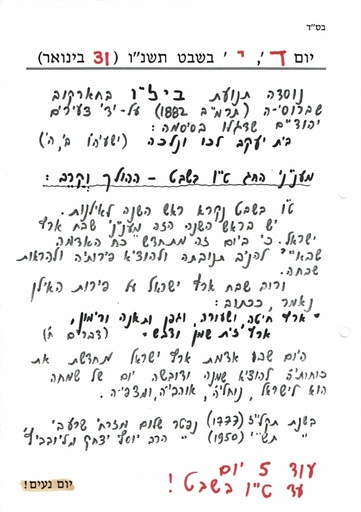 בס"ד
יום ד', י' בשבט תשנ"ו (31 בינואר)
נוסדה תנועת ביל"ו בחארקוב
שברוסי-ה (תרמ"ב 1882) על-יד צעירים
יהודים שדגלו בסיסמה:
בית יעקב לכו ונלכה (ישעיהו ב', ה')
מעניני החג ט"ו בשבט - ההולך וקרב:
ט"ו בשבט נקרא ראש השנה לאילנות.
יש בראש השנה הזה מעניני שבח ארץ
ישראל. כי ביום זה מתחדש כח האדמה
שבא"י להניב תנובתה ולהוציא פירותיה ולהראות
שבחה.
ורוב שבח ארץ ישראל על פירות האילן
נאמר, ככתוב:
"ארץ חיטה ושעורה, וגפן ותאנה ורימון,
ארץ זית שמן ודבש" (דברים ח')
היום שבו אדמת ארץ ישראל מחדשת את
כוחותיה להוציא שמנה ודובשה יום של שמחה
הוא לישראל, נוחליה, אוהביה, ומצפיה.
בשנת תקל"ז (1777) נפטר שלום מזרחי שרעבי
" תש"י (1950) " הרב יוסף יצחק מליובביץ'
עוד 5 יום
עד ט"ו בשבט!
יום נעים!